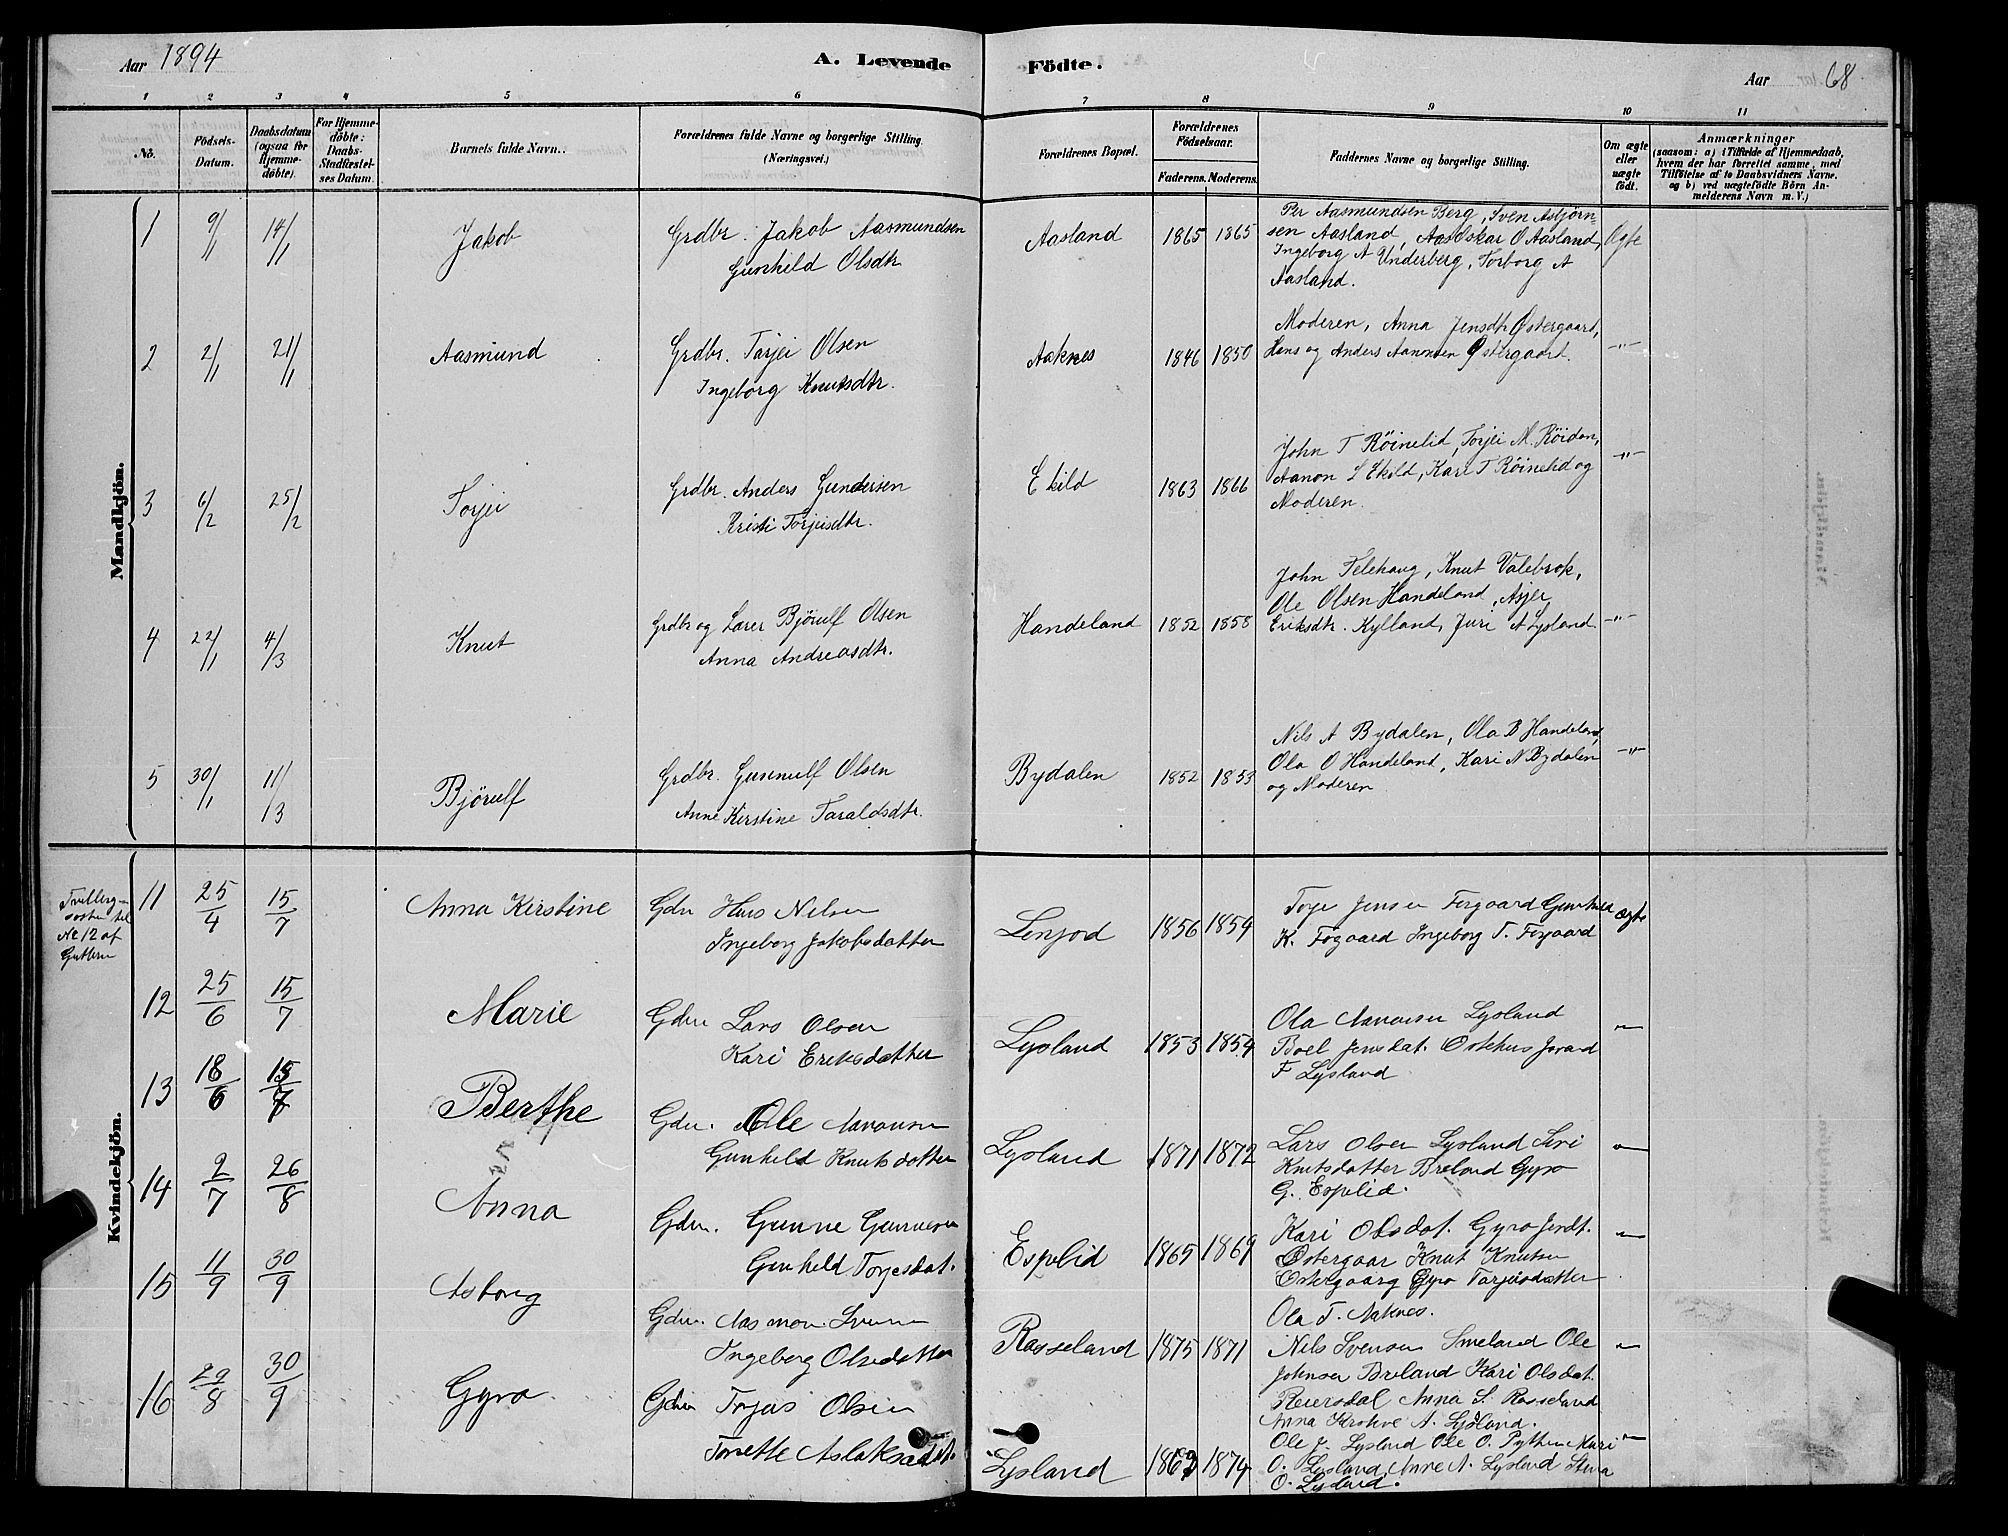 Aar 1894
A. Levende Födte.
Aar 68
1 2 3 4 5 6 7 8 9 10 11
No.
Födsels-
Datum.
Daabsdatum
(ogsaa for
Hjemme-
döbte).
For Hjemme-
döbte:
Daabs-
Stadfæstel-
ses Datum.
Barnets fulde Navn.
Forældrenes fulde Navne og borgerlige Stilling.
(Næringsvei.)
Forældrenes Bopæl.
Forældrenes
Födselsaar.
Faderens. Moderens.
Faddernes Navne og borgerlige Stilling.
Om ægte
eller
uægte
födt.
Anmærkninger
(saasom: a) i Tilfælde af Hjemmedaab,
hvem der har forrettet samme, med
Tilföielse af to Daabsvidners Navne,
og b) ved uægtefödte Börn An-
melderens Navn m. V.)
Mandkjön.
1 9/1 14/1 Jakob
Grdbr. Jakob Aasmundsen
Gunhild Olsdtr
Aasland 1865 1865
Per Aasmundsen Berg, Sven Asbjørn-
sen Aasland, Aasoskar O Aasland,
Ingeborg A Underberg, Torborg A
Aasland.
Ægte
2 2/1 21/1 Aasmund
Grdbr. Torjei Olsen
Ingeborg Knutsdtr.
Aaknes 1846 1850
Moderen, Anna Jensdtr Østergaart,
Hans og Anders Aanonsen Østergaart.
-"-
3 6/2 25/2 Torjei
Grdbr. Anders Gundersen
Kristi Torjeisdtr.
Ekild 1863 1866
John T Röinelid, Torjei M. Röidan,
Aanon L Ekild, Kari T Röinelid og
Moderen.
-"-
4 22/1 4/3 Knut
Grdbr og Lærer Bjørulf Olsen
Anna Andreasdtr.
Handeland 1852 1858
John Telehaug, Knut Valebrok,
Ole Olsen Handeland, Asjer
Eriksdtr. Kylland, Juri A Lysland
-"-
5 30/1 11/3 Bjørulf
Grdbr. Gunnulf Olsen
Anne Kirstine Taraldsdtr.
Bydalen 1852 1853
Nils A Bydalen, Ola B Handeland,
Ola O Handeland, Kari N Bydalen
og Moderen
-"-
Kvindekjön.
Tvilling-
søster til
No 12 af
Guttene
11 25/4 15/7 Anna Kirstine
Gdr Hans Nilsen
Ingeborg Jakobsdatter
Lenjod 1856 1859
Torje Jensen Forgaard Gunhild
K. Fogaard Ingeborg T. Forgaard
ægte
12 25/6 15/7 Marie
Gdr Lars Olsen
Kari Eriksdatter
Lysland 1853 1854
Ola Aanonsen Lysland
Boel Jensdat. Ostehus Jorand
F Lysland
13 18/6 15/7 Berthe
Gdr. Ole Aanonsen
Gunhild Knutsdatter
Lysland 1871 1872
Lars Olsen Lysland Siri
Knutsdatter Breland Gyro
G. Espelid.
14 2/7 26/8 Anna
Gdr. Gunne Gunnersen
Gunhild Torjesdat.
Espelid 1865 1869
Kari Olsdat. Gyro Jensdt.
Østergaar Knut Knutsen
Østergaarg Gyro Torjusdatter
Ola T. Aaknes.
15 11/9 30/9 Asborg
Gdr. Aasmon Svensen
Ingeborg Olsedatter
Rosseland 1875 1871
Nils Svensen Smeland Ole
Johnsen Breland Kari Olsdat.
Reiersdal Anna S. Rosseland
Anna A. Lysland.
16 29/8 30/9 Gyro
Gdr Torjus Olsen
Tonette Aslaksdat.
Lysland 1874
Ole J. Lysland Ole O. Mari
O. Lysland Anne A. Lysland Stina
O. Lysland.